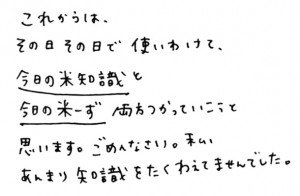 これからは、
その日その日で使いわけて、
今日の米知識と
今日の米ーず 両方つかっていこうと
思います。ごめんなさい。私い
あんまり知識をたくわえてませんでした。